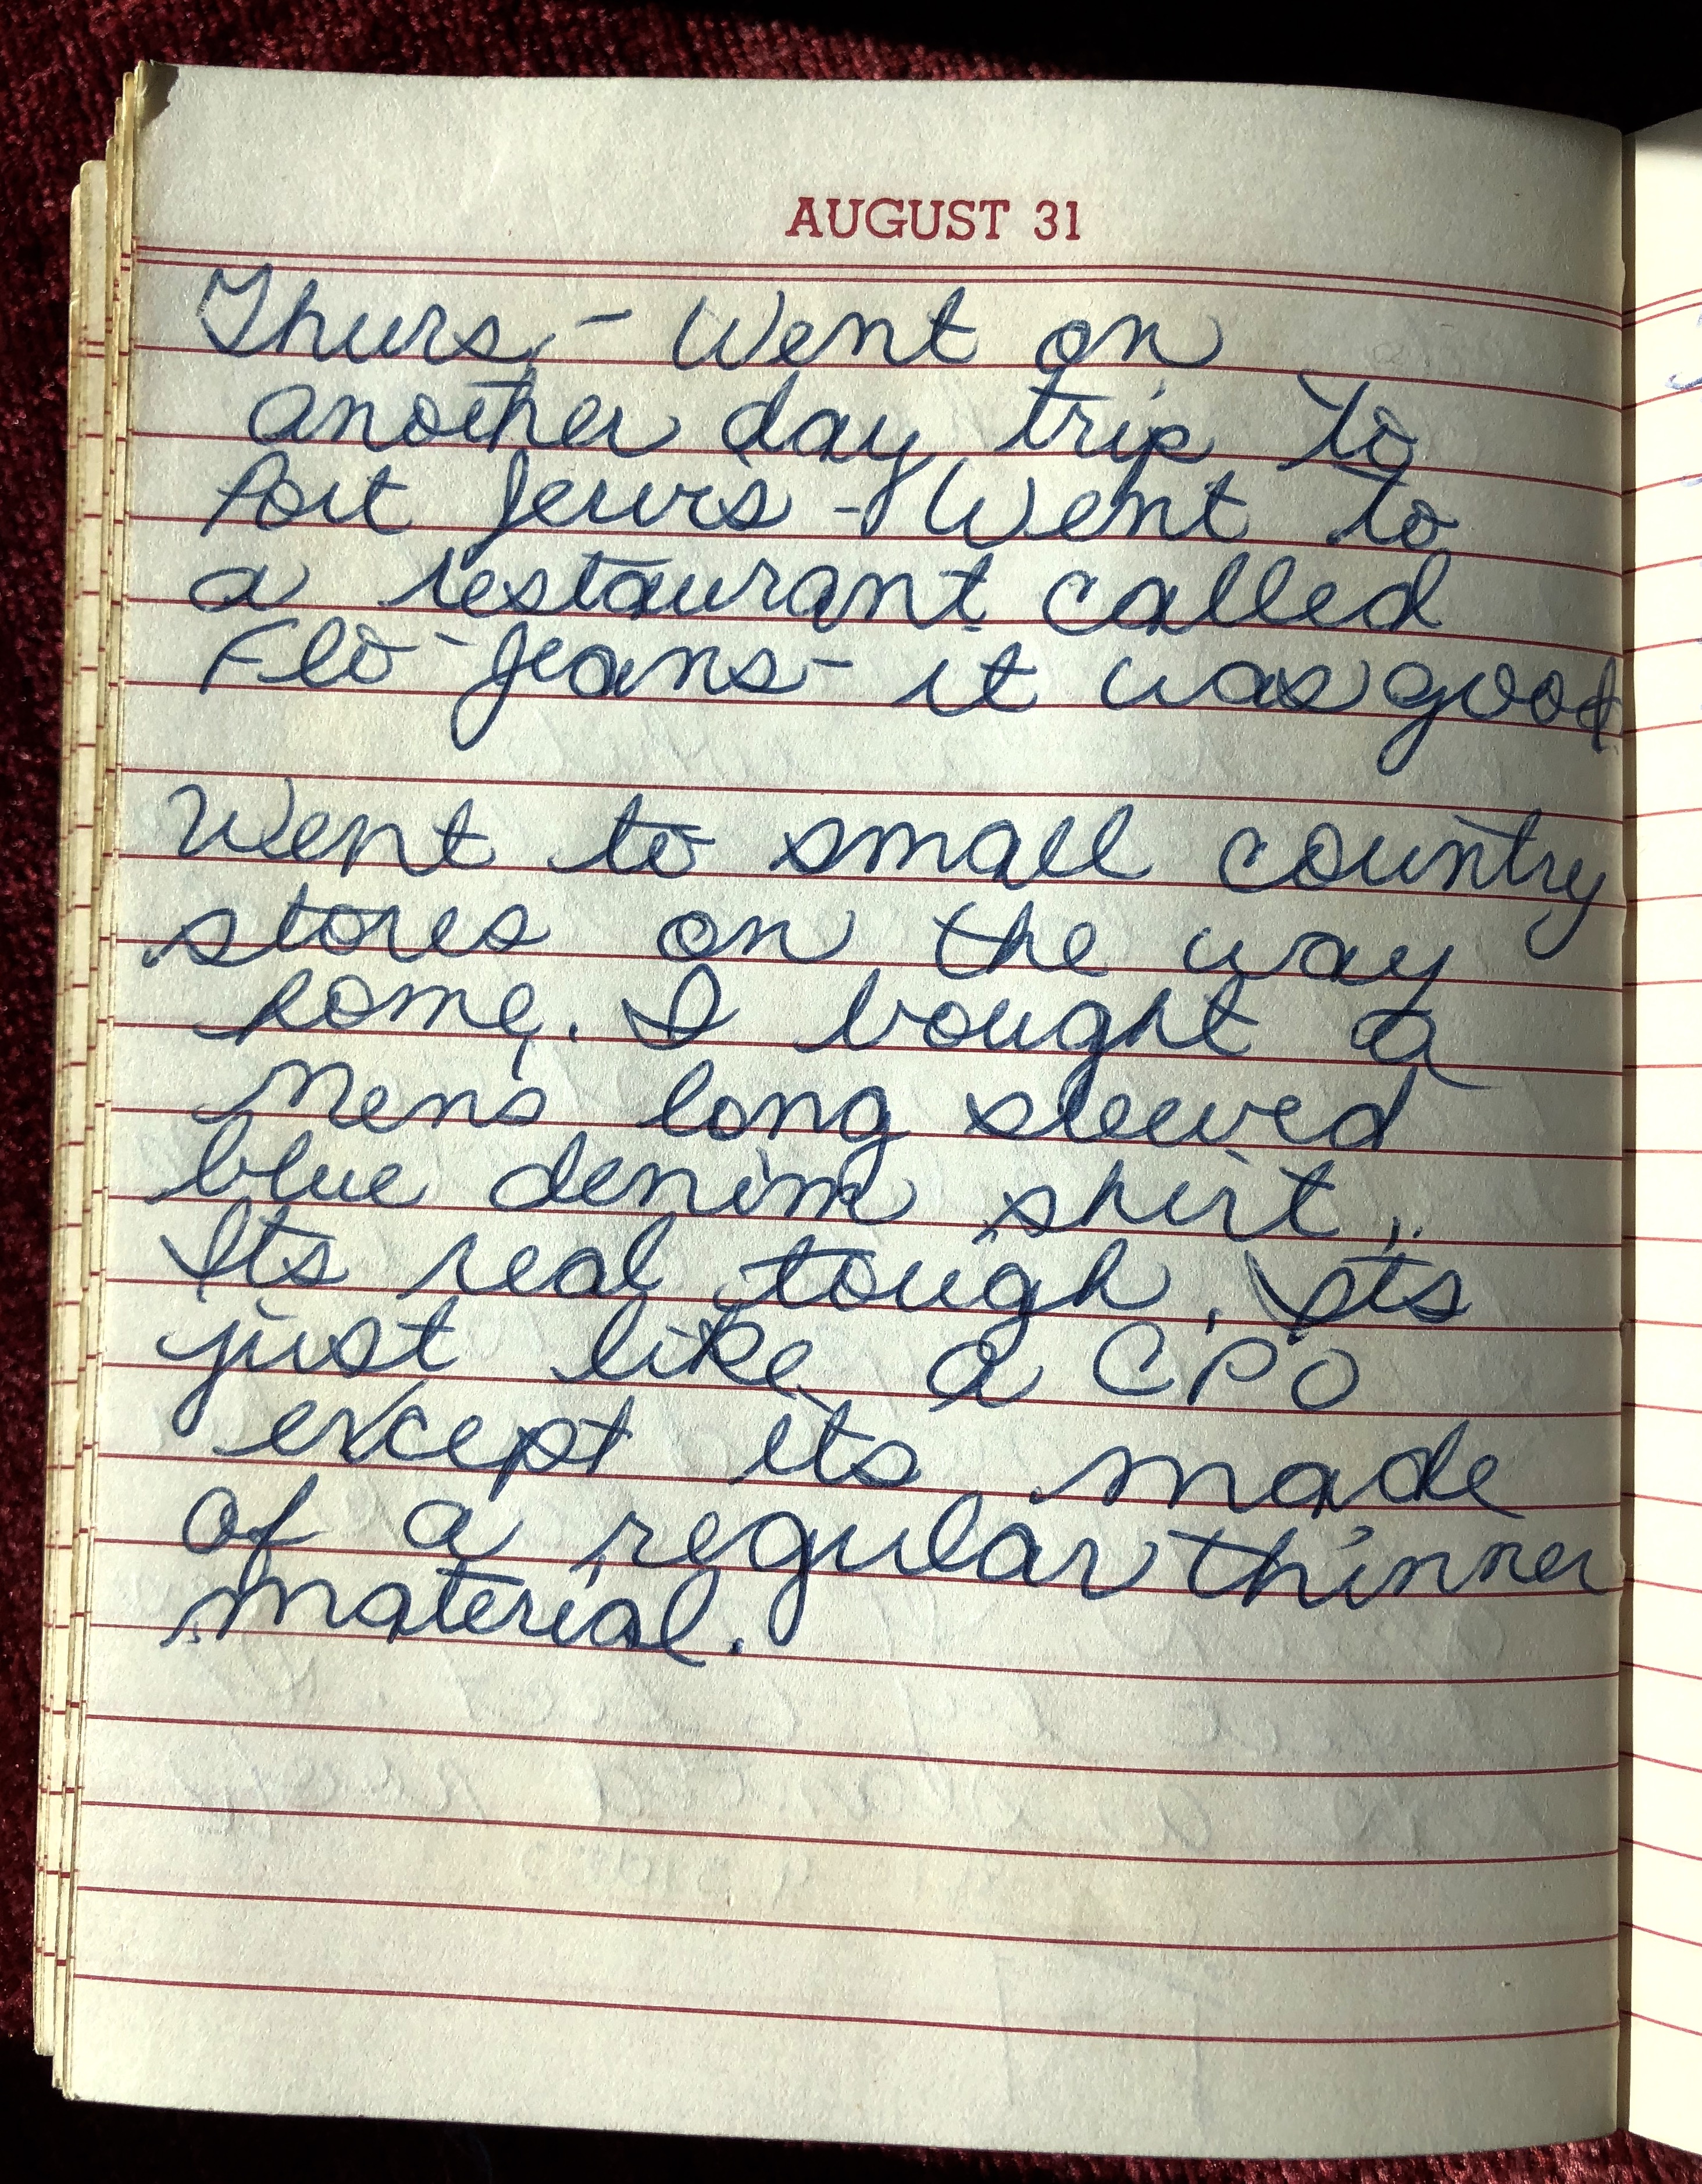 AUGUST 31
Thurs, - Went on
another day trip to
Port Jervis - Went to
a restaurant called
Flo-Jeans - it was good
Went to small country
stores on the way
home. I bought a
mens long sleeved
blue denim shirt.
Its real tough. Its
just like a CPO
except its made
of a regular thinner
material.